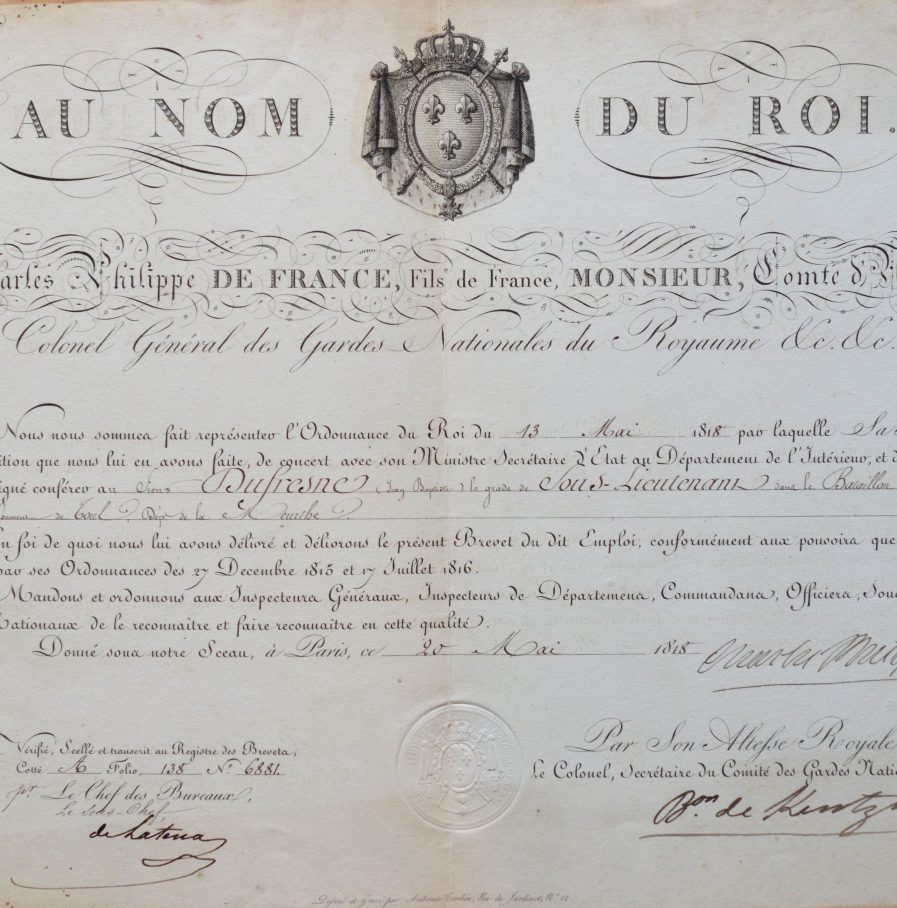 AU NOM DU ROI.
arles Philippe DE FRANCE, Fils de France, MONSIEUR, Comte d'
Colonel Général des Gardes Nationales du Royaume &c. &c.
Nous nous sommes fait représenter l'Ordonnance du Roi du 13 Mai 1818 par laquelle Sa
ition que nous lui en avons faite, de concert avec son Ministre Secrétaire d'Etat au Département de l'Intérieur, et d
igné conférer au Sieur Dufresne (Jean Baptiste) le grade de Sous-Lieutenant dans le Bataillon
de Toul, Dépt de la Meurthe.
n foi de quoi nous lui avons délivré et délivrons le présent Brevet du dit Emploi, conformément aux pouvoirs que
par ses Ordonnances des 27 Decembre 1815 et 17 Juillet 1816.
Mandons et ordonnons aux Inspecteurs Généraux, Inspecteurs de Départemens, Commandans, Officiers, Sou
Nationaux de le reconnaitre et faire reconnaitre en cette qualité.
Donné sous notre Sceau, à Paris, ce 20 Mai 1818
Charles Phili
Vérifié, Scellé et transcrit au Registre des Brevets,
Cotté A Folio 138 N° 6881.
pr Le Chef des Bureaux,
Le Sous-Chef
de Latena
Par Son Altesse Royale
Le Colonel, Secrétaire du Comité des Gardes Nati
Bon de Kentz
Dessiné et Gravé par Ambroise Tardieu, Rue du Jardinet, N° 12.